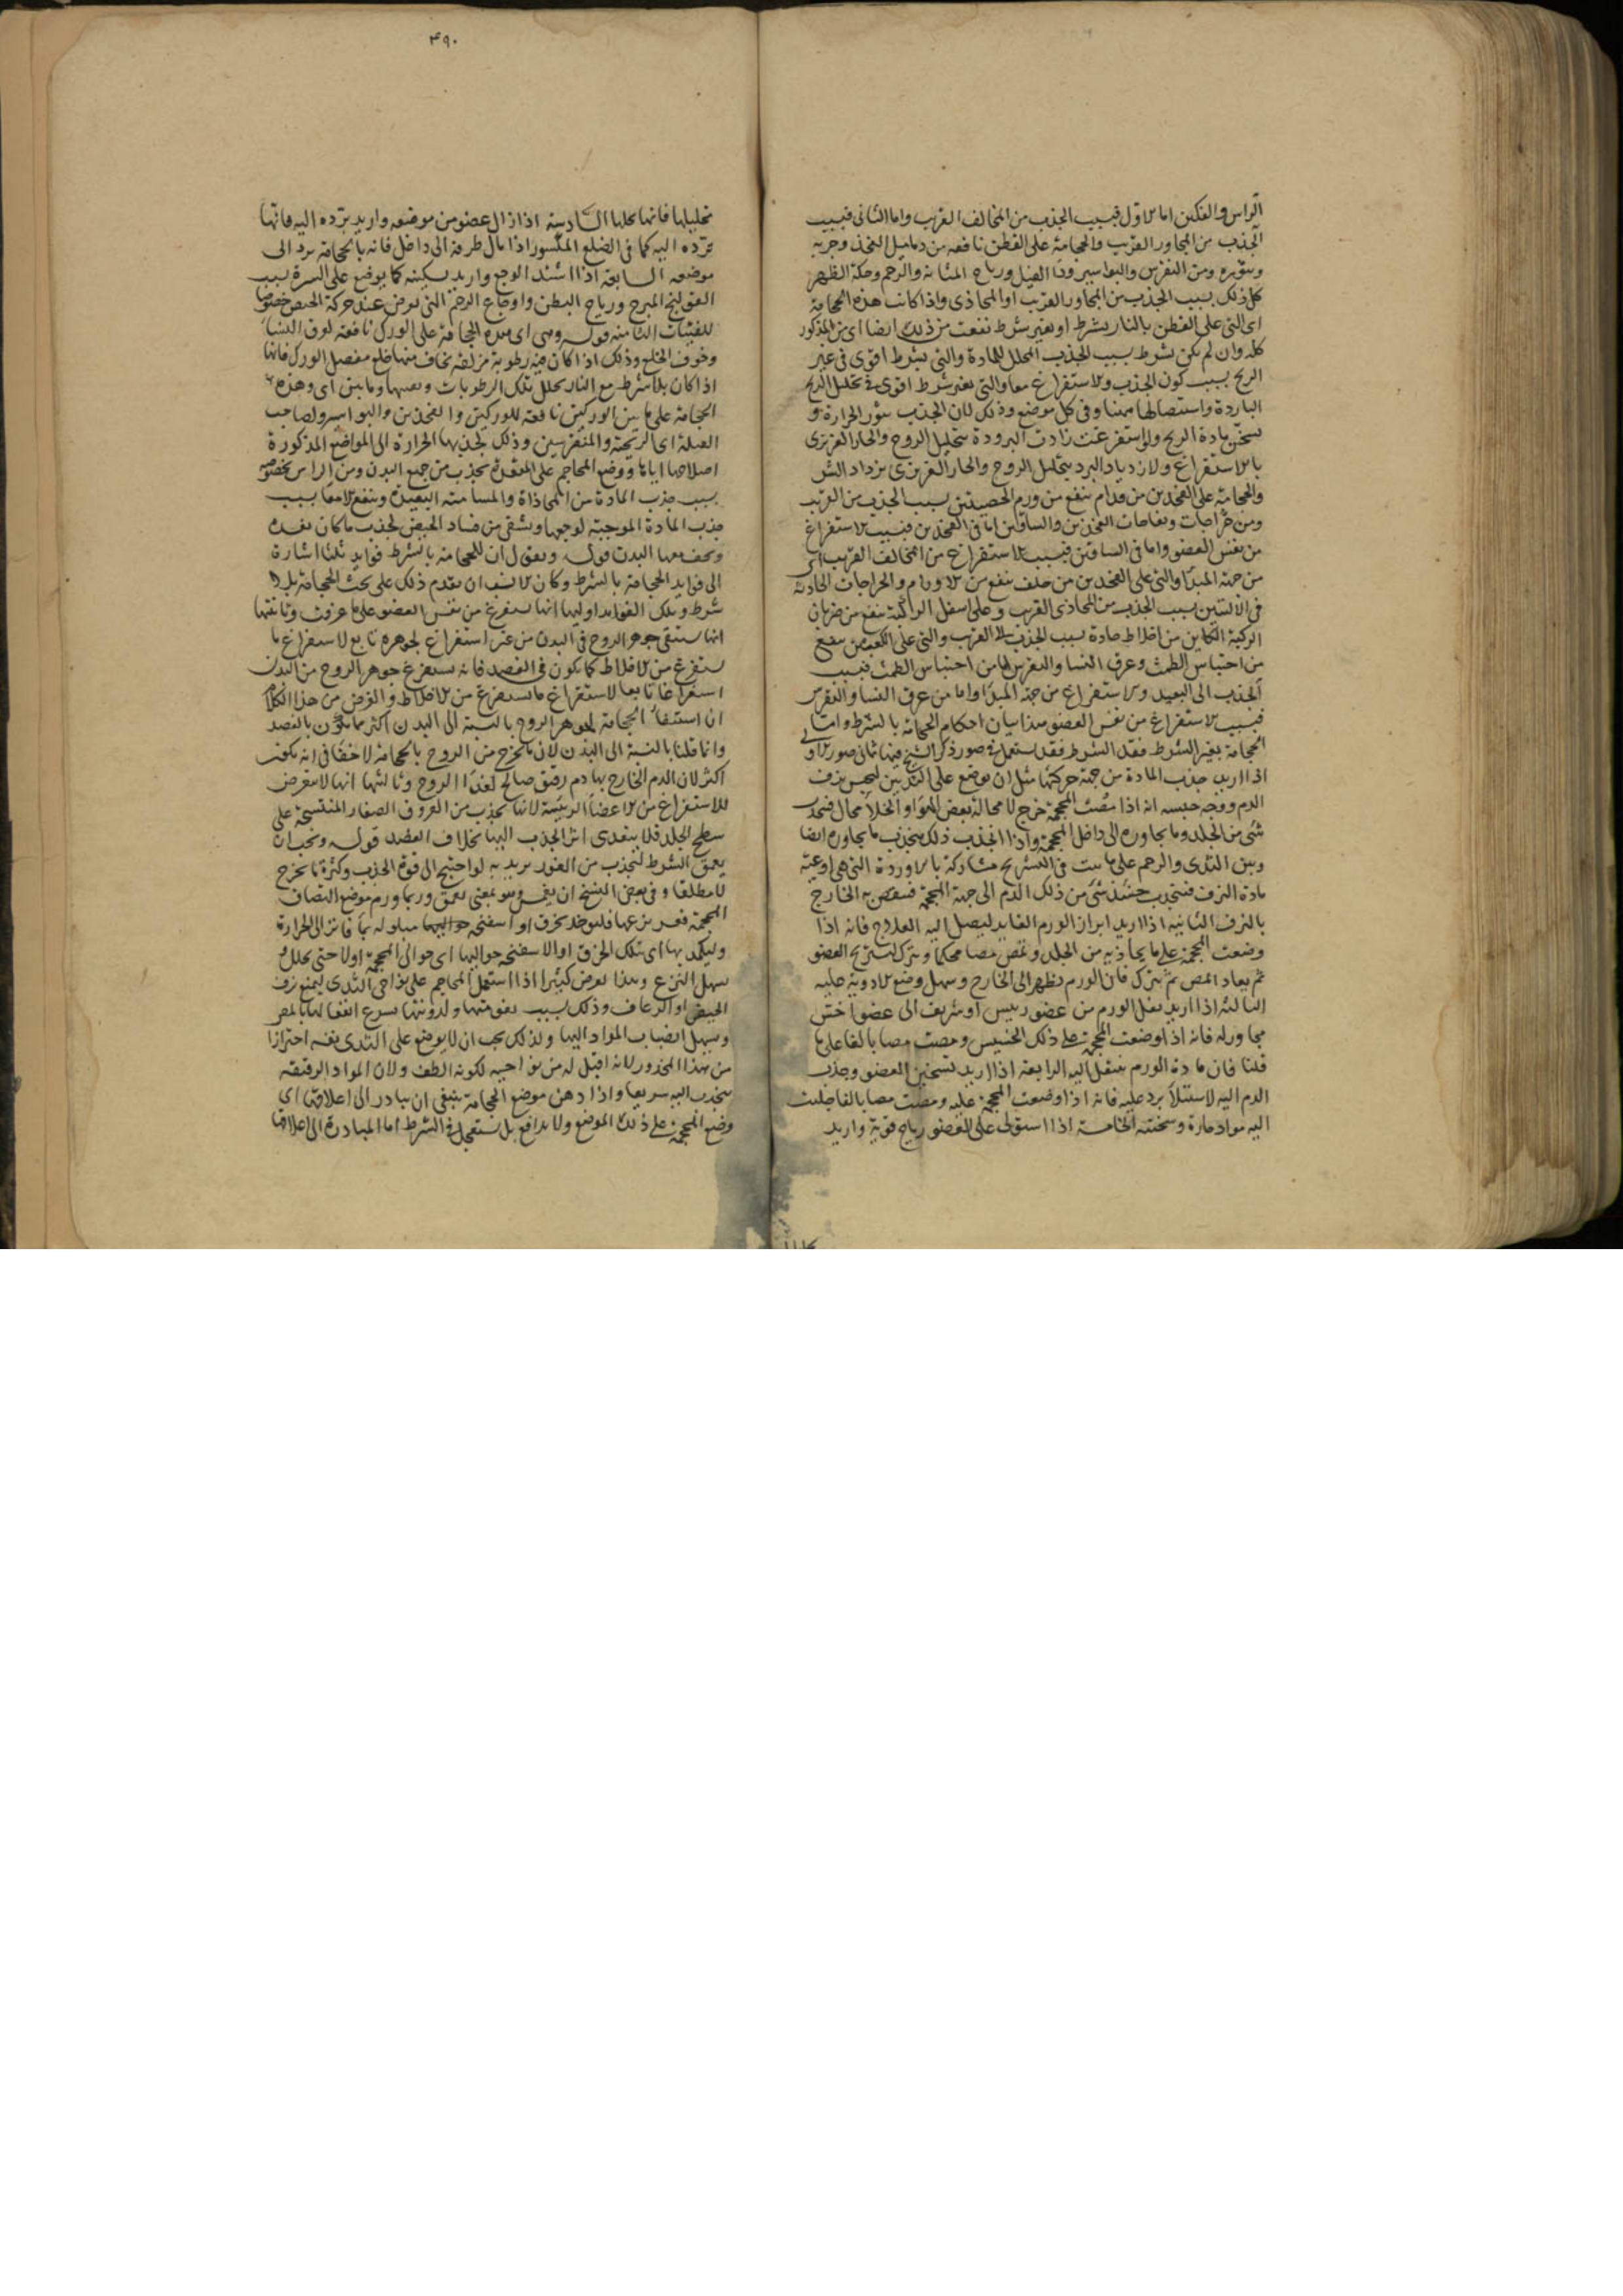 الراس والفكين اما الاول فبسبب الجذب من المخالف القريب واما الثانى فبسبب
الجذب من المجاور القريب والحجامة على القطن نافعه من دماميل الفخذ وجربه
وبثوره ومن النقرس والبواسير ودا الفيل ورياح المثانه والرحم وحكة الظهر
كل ذلك بسبب الجذب من المجاور القريب او المحاذى واذا كانت هذه الحجامة
اى التى على القطن بالنار بشرط او بغير شرط نفعت من ذلك ايضا اى من المذكور
كله وان لم يكن بشرط بسبب الجذب المحلل للمادة والتى بشرط اقوى فى غير
الريح بسبب كون الجذب والاستفراغ معا والتى بغير شرط اقوى فى تحليل الريح
الباردة واستصالها ههنا وفى كل موضع وذلك لان الجذب يثور الحرارة و
يسخن مادة الريح ولو استفرغت زادت البرودة بتحليل الروح والحار الغريزى
بالاستفراغ ولازدياد البرد بتحليل الروح والحار الغريزى يزداد الشر
والحجامة على الفخذين من قدام ينفع من ورم الخصيتين بسبب الجذب من القريب
ومن خراجات الفخذين والساقين اما فى الفخذين فبسبب الاستفراغ
من نفس العضو واما فى الساقين فبسبب الاستفراغ من المخالف القريب اى
من جهة المبدا والتى على الفخذين من خلف ينفع من الاورام والخراجات الحادثه
فى الاليتين بسبب الجذب من المحاذى القريب وعلى اسفل الركبة ينفع من ضربان
الركبة الكاين من اخلاط حادة بسبب الجذب الى القريب والتى على الكعبين ينفع
من احتباس الطمث وعرق النسا والنقرس اما من احتباس الطمث فبسبب
الجذب الى البعيد والاستفراغ من جهة المبدا واما من عرق النسا والنقرس
فبسبب الاستفراغ من نفس العضو هذا بيان احكام الحجامة بالشرط واما
الحجامة بغير الشرط فقد استعمل فى صور ذكر الشيخ منها ثمانى صور الاولى
اذا اريد جذب المادة من جهة حركتها مثل ان يوضع على الثديين ليحبس نزف
الدم ووجه حبسه انه اذا مصت المحجمة خرج لا محالة بعض الهوا والخلا محال فينجذب
شى من الجلد وما يجاوره الى داخل المحجمة واذا انجذب ذلك ينجذب ما يجاوره ايضا
وبين الثدى والرحم على ما بينت فى التشريح مشاركة بالاوردة التى هى اوعية
مادة النزف فينجذب حينئذ شى من ذلك الدم الى جهة المحجمة فينقص به الخارج
بالنزف الثانيه اذا اريد ابراز الورم الغاير ليصل اليه العلاج فانه اذا
وضعت المحجمة على ما يحاذيه من الجلد ويمص مصا محكما ويترك ليستريح العضو
ثم يعاد المص ثم يترك فان الورم يظهر الى الخارج وسهل وضع الادوية عليه
الثالثه اذا اريد نقل الورم من عضو رئيس او شريف الى عضو اخس
مجاور له فانه اذا وضعت المحجمة على ذلك الخسيس ومصت مصا بالغا على ما
قلنا فان مادة الورم ينتقل اليه الرابعة اذا اريد تسخين العضو وجذب
الدم اليه لاستيلا برد عليه فانه اذا وضعت المحجمة عليه ومصت مصا بالغا جلبت
اليه مواد حارة وسخنته الخامسة اذا استولى على العضو رياح قوية واريد
٣٩٠
تحليلها فانها تحللها السادسة اذا زال عضو من موضعه واريد برده اليه فانها
ترده اليه كما فى الضلع المكسور اذا مال طرفه الى داخل فانه بالحجامة يرد الى
موضعه السابعة اذا اشتد الوجع واريد تسكينه كما يوضع على السرة بسبب
القولنج المبرح ورياح البطن واوجاع الرحم التى تعرض عند حركة الحيض خصوصا
للفتيات الثامنه قوله وهى اى هذه الحجامة على الورك نافعه لعرق النسا
وخوف الخلع وذلك اذا كان فيه رطوبة مزلقة يخاف منها خلع مفصل الورك فانها
اذا كان بلا شرط مع النار يحلل تلك الرطوبات وما بين اى وهذه
الحجامة على ما بين الوركين نافعة للوركين والفخذين والبواسير ولصاحب
القيلة اى الريحية والمنقرسين وذلك لجذبها الحرارة الى المواضع المذكورة
اصلاحها اياها ووضع المحاجم على المقعدة يجذب من جميع البدن ومن الراس بخصوصه
بسبب جذب المادة من المحاذاة والمسامته البعيدة وينفع الامعا بسبب
جذب المادة الموجبة لوجعها ويشفى من فساد الحيض لجذب ما كان بعده
ويخف معها البدن قوله ونقول ان للحجامة بالشرط فوايد ثلثا اشارة
الى فوايد الحجامة بالشرط وكان الانسب ان يقدم ذلك على بحث الحجامة بلا
شرط وتلك الفوايد اوليها انها يستفرغ من نفس العضو على ما عرفت وثانيتها
انها يستبقى جوهر الروح فى البدن من غير استفراغ لجوهره تابع لاستفراغ ما
يستفرغ من الاخلاط كما يكون فى الفصد فانه يستفرغ جوهر الروح من البدن
استفراغا تابعا لاستفراغ ما يستفرغ من الاخلاط والغرض من هذا الكلام
ان استبقا الحجامة لجوهر الروح بالنسبة الى البدن اكثر مما يكون بالفصد
وانما قلنا بالنسبة الى البدن لان ما يخرج من الروح بالحجامة لا خفا فى انه يكون
اكثر لان الدم الخارج بها دم رقيق صالح لغذا الروح وثالثها انها لا يتعرض
للاستفراغ من الاعضا الرئيسة لانها يجذب من العروق الصغار المنتسجة على
سطح الجلد فلا يتعدى اثر الجذب اليها بخلاف الفصد قوله ويجب ان
يعمق الشرط لتجذب من الغور يريد به لو احتيج الى قوة الجذب وكثرة ما يخرج
لا مطلقا وفى بعض النسخ ان يغمر وهو بمعنى يعمق وربما ورم موضع التصاق
المحجمة فعسر نزعها فليوخذ بخرق او اسفنجه مبلوله بما فاتر الى الحرارة
وليكمد بها اى بتلك الخرق او الاسفنجه حواليها اى حوالى المحجمة اولا حتى يحلل و
يسهل النزع وهذا يعرض كثيرا اذا استعمل المحاجم على نواحى الثدى ليمنع نزف
الحيض او الرعاف وذلك بسبب ولدونتها يسرع انفعالها بالمص
وسهل انصباب المواد اليها ولذلك يجب ان لا يوضع على الثدى نفسه احترازا
من هذا المحذور لانه اقبل له من نواحيه لكونه الطف ولان المواد الرقيقة
ينجذب اليه سريعا واذا دهن موضع الحجامة ينبغى ان يبادر الى اعلاقها اى
وضع المحجمة على ذلك الموضع ولا يدافع بل يستعجل فى الشرط اما المبادرة الى اعلاقها